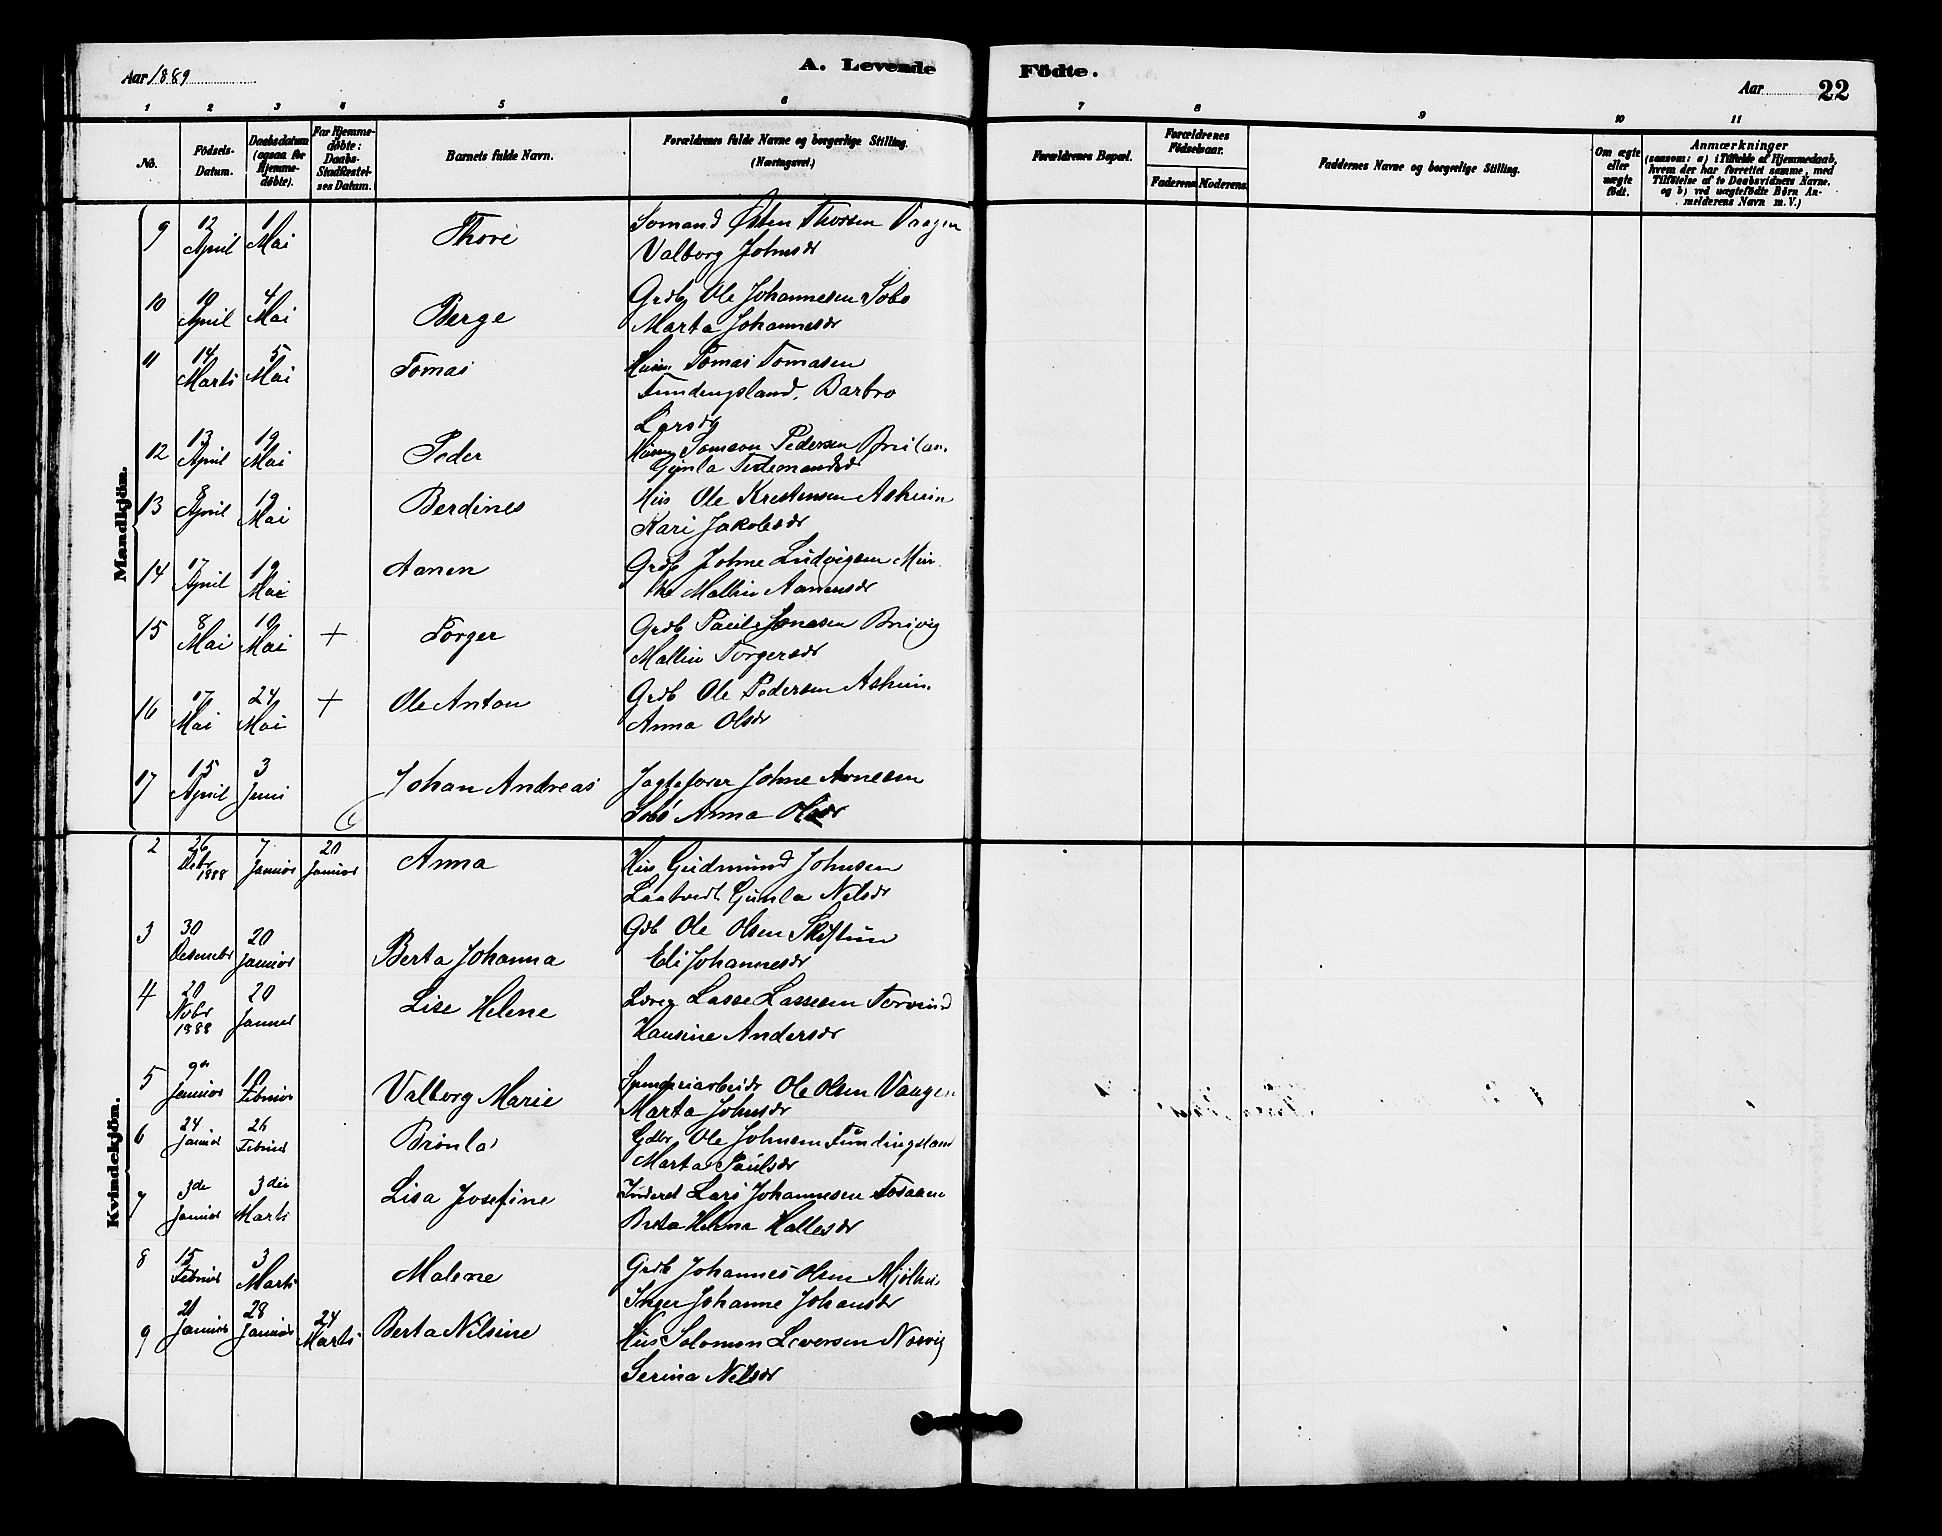 Aar 1889
A. Levende Födte.
Aar 22
1 2 3 4 5 6 7 8 9 10 11
No.
Födsels-Datum.
Daabsdatum (ogsaa for Hjemmedöbte).
For Hjemmedöbte: Daabs-Stadfæstelses Datum.
Barnets fulde Navn.
Forældrenes fulde Navne og borgerlige Stilling. (Næringsvei.)
Forældrenes Bopæl.
Forældrenes Födselsaar.
Faderens Moderens.
Faddernes Navne og borgerlige Stilling.
Om ægte eller uægte født.
Anmærkninger
(saasom: a) i Tilfælde af Hjemmedaab, hvem der har forrettet samme, med Tilföielse af to Daabsvidners Navne, og b) ved uægtefödte Börn Anmelderens Navn m. V.)
Mandkjön.
9 12 April 1 Mai Thore Sømand Østen Thorsen Vaagen
Valborg Johnsdr
10 April 4 Mai Berge Grdb Ole Johannesen Søbø
Marta Johannesdr
11 14 Marts 5 Mai Tomas Husm Tomas Tomasen
Fundingsland, Barbro
Larsdr
12 13 April 19 Mai Peder Husm Samson Pedersen
Gunla Tedemandsdr
13 8 April 19 Mai Berdines Hus Ole Kristensen Askvin
Kari Jakobsdr
14 17 April 19 Mai Aanen Grdb Johne Ludvigsen
Mallin Aanensdr
15 8 Mai 19 Mai + Torger Grdb Paul Jonasen
Mallin Torgersdr
16 17 Mai 24 Mai + Ole Anton Grdb Ole Pedersen Askvin
Anna Olsdr
17 15 April 3 Juni Johan Andreas Jagtefører Johne Arnesen
Søbø Anna Olsdr
Kvindekjön.
2 26 Debr 1888 7 Januar 20 Januar Anna Hus Gudmund Johnsen
Laatvedt Gunla Nelsdr
3 30 Desembr 20 Januar Berta Johanna Gdb Ole Olsen Skiftun
Eli Johannesdr
4 20 Nobr 1888 20 Januar Lise Helene Lasse Lassesen
Hansine Andersdr
5 Januar 10 Februar Valborg Marie Spinneriarbeidr Ole Olsen Vaagen
Marta Johnsdr
6 24 Januar 26 Februar Brønla Gdbr Ole Johnsen Fundingsland
Marta Paulsdr
7 3de Januar 3die Marts Lisa Josefine Inderst Lars Johannesen Tosaaen
Berta Helena Hallesdr
8 15 Februar 3 Marts Malene Grdb Johannes Olsen
Inger Johanne Johansdr
9 21 Januar 28 Januar 24 Marts Berta Nilsine Hus Solomon Seversen
Serina Nelsdr